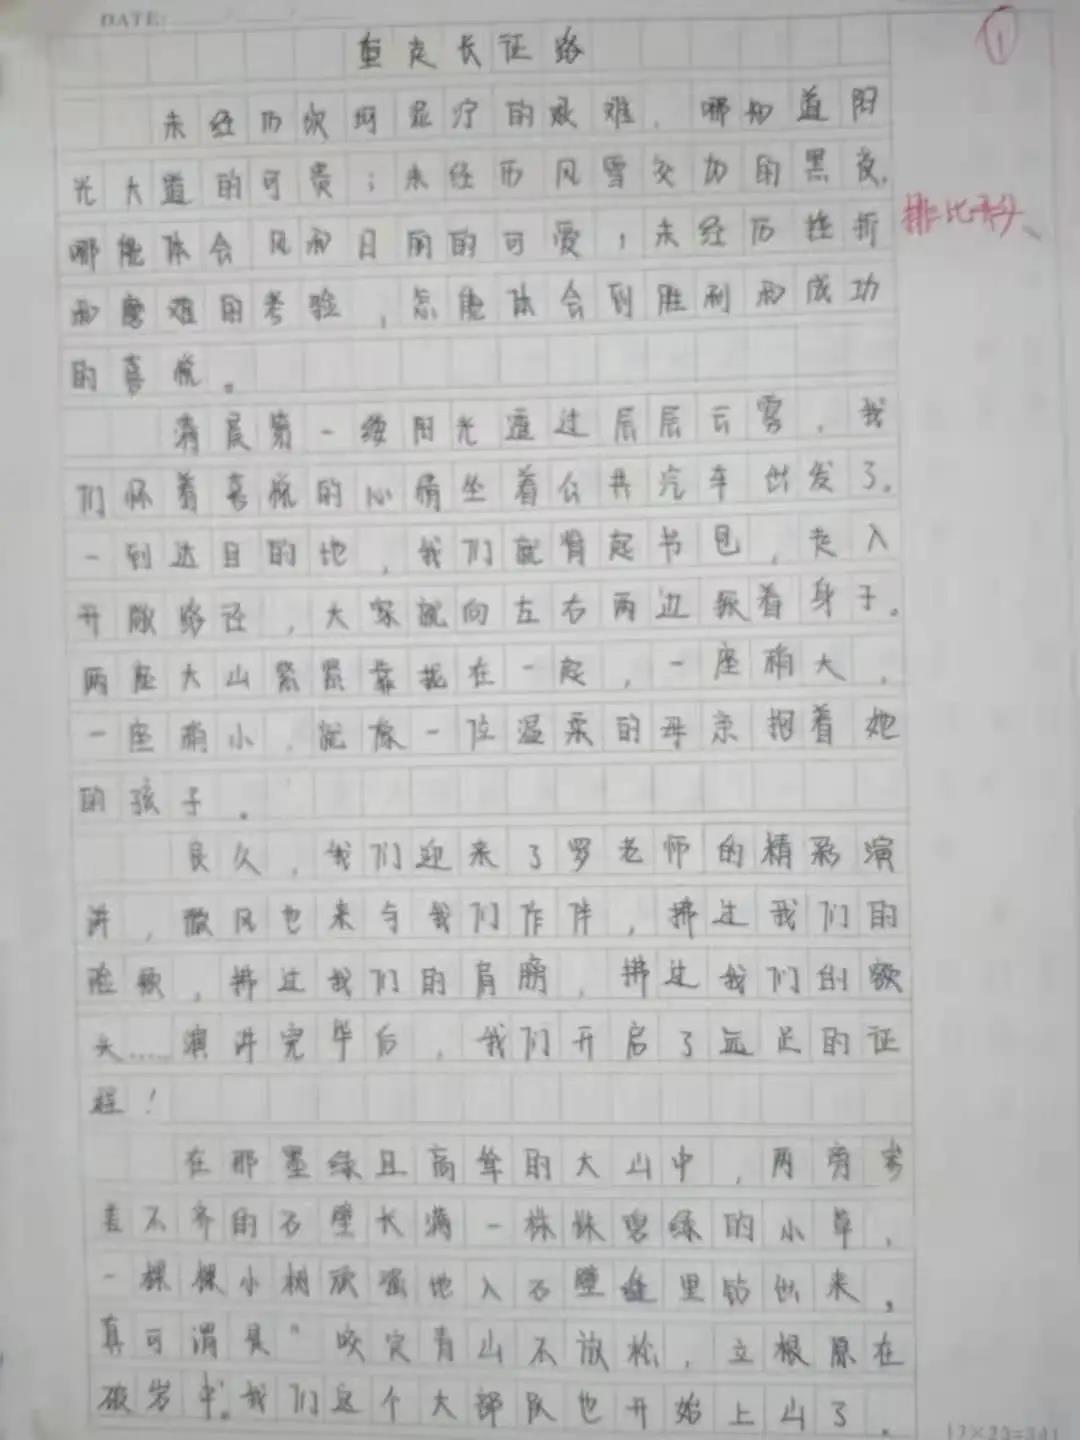 DATE:
①
重走长证路
未经历次坷泥泞的艰难，哪知道阳
光大道的可贵；未经历风雪交加的黑夜，
排比形
哪能体会风和日丽的可爱；未经历挫折
和磨难的考验，怎能体会到胜利和成功
的喜悦。
清晨第一缕阳光透过层层云雾，我
们怀着喜悦的心情坐着公共汽车出发了。
一到达目的地，我们就背起书包，走入
开阔路径，大家就向左右两边扳着身子。
两座大山紧紧靠拢在一起，一座稍大，
一座稍小，就像一位温柔的母亲抱着她
的孩子。
良久，我们迎来了罗老师的精彩演
讲，微风也来与我们作伴，拂过我们的
脸颊，拂过我们的肩膀，拂过我们的额
头……演讲完毕后，我们开启了远足的证
程！
在那墨绿且高耸的大山中，两旁参
差不齐的石壁长满一株株碧绿的小草，
一棵棵小树顽强地入石壁缝里钻出来，
真可谓是"咬定青山不放松，立根原在
破岩中。我们这个大部队也开始上山了。
17×23=391